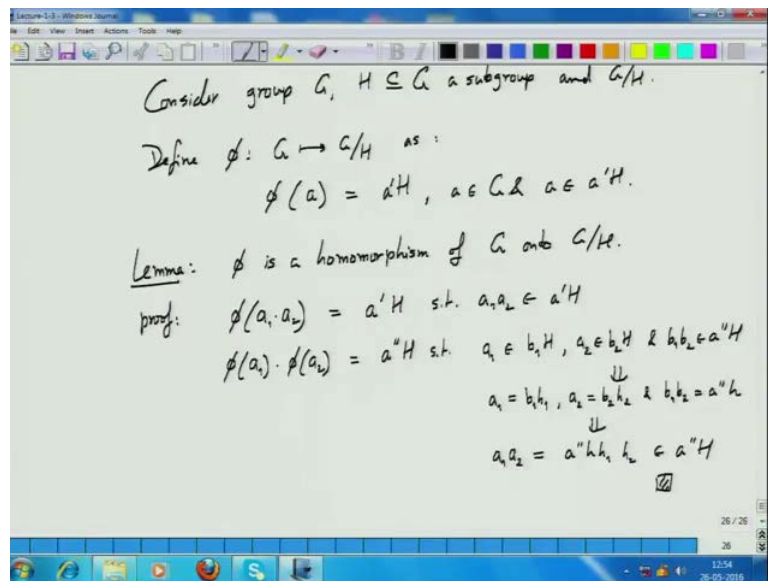 Lecture-1-3 - Windows Journal
File Edit View Insert Actions Tools Help
Consider group G, H ⊆ G a subgroup and G/H.
Define ϕ: G ↦ G/H as :
ϕ(a) = a'H , a ∈ G & a ∈ a'H.
Lemma: ϕ is a homomorphism of G onto G/H.
proof: ϕ(a₁·a₂) = a'H s.t. a₁a₂ ∈ a'H
ϕ(a₁)·ϕ(a₂) = a''H s.t. a₁ ∈ b₁H, a₂ ∈ b₂H & b₁b₂ ∈ a''H
⇓
a₁ = b₁h₁, a₂ = b₂h₂ & b₁b₂ = a''h
⇓
a₁a₂ = a''hh₁h₂ ∈ a''H
26 / 26
26
12:54
26-05-2016